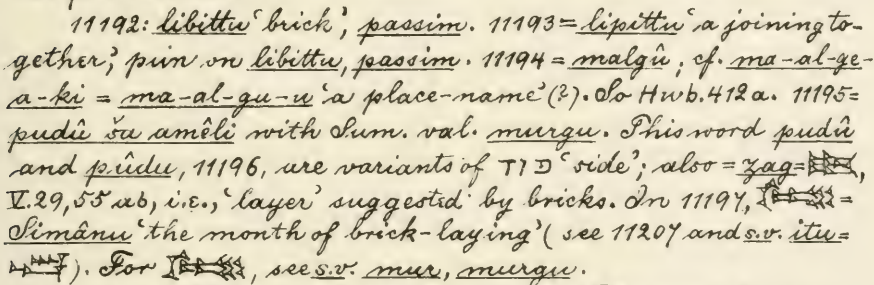 11192: libittu ‘brick’, passim. 11193 = lipittu ‘a joining to-
gether’; pun on libittu, passim. 11194 = malgû; cf. ma-al-ge-
a-ki = ma-al-gu-u ‘a place-name’ (?). So Hwb. 412a. 11195 =
pudû ša amêli with Sum. val. murgu. This word pudû
and pûdu, 11196, are variants of ‘side’; also = zag =
V. 29, 55 ab, i.e., ‘layer’ suggested by bricks. In 11197, =
Simânu ‘the month of brick-laying’ (see 11207 and s.v. itu =
). For , see s.v. mur, murgu.